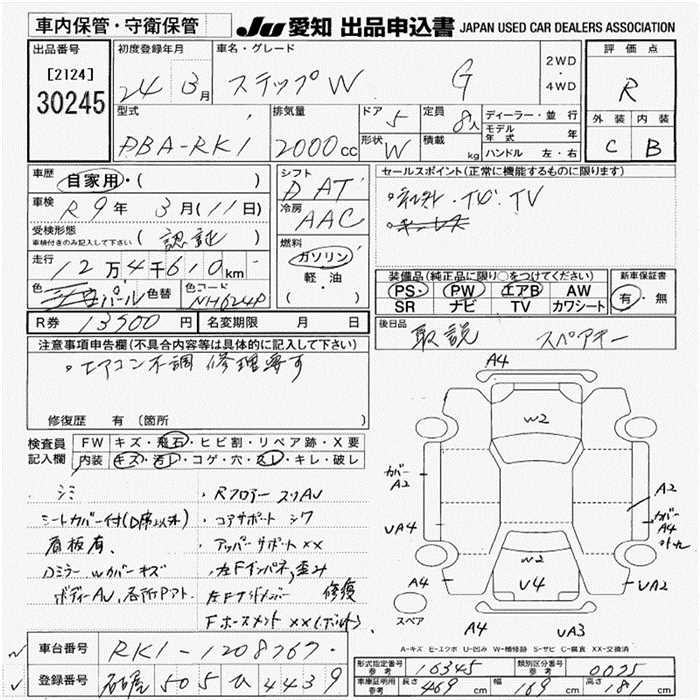 車内保管・守衛保管
JU 愛知 出品申込書 JAPAN USED CAR DEALERS ASSOCIATION
出品番号
[2124]
30245
初度登録年月
24 3月
車名・グレード
ステップW G
2WD
・
4WD
評価点
R
外装 内装
C B
型式
DBA-RK1
排気量
2000cc
ドア 5
形状 W
定員 8人
積載 kg
ディーラー・並行
モデル年式 年
ハンドル 左・右
車歴 自家用・( )
車検 R9年 3月(11日)
受検形態
車検付きのみ記入して下さい (認証)
走行 12万4千610km
色 パール 色替
色コード NH624P
シフト
D AT
冷房
AAC
燃料
ガソリン
軽・油
( )
セールスポイント(正常に機能するものに限ります)
・TV
装備品(純正品に限り〇をつけてください)
PS・ PW エアB AW
SR ナビ TV カワシート
新車保証書
有・無
R券 13500円
名変期限 月 日
後日品
取説 スペアキー
注意事項申告欄(不具合内容等は具体的に記入して下さい)
・エアコン不調 修理要す
修復歴 有 〔箇所 〕
検査員
記入欄
FW キズ・飛石・ヒビ割・リペア跡・X要
内装 キズ・汚レ・コゲ・穴・スレ・キレ・破レ
シミ
シートカバー付(D席以外)
看板有、
Dミラー Wカバーキズ
ボディーAU、各所Pアト
・Rフロアー スリAU
・コアサポート シワ
・アッパーサポートXX
・左Fインパネ、歪み
左Fサイドメンバー 修復
Fホースメント XX(ボルト)
A4
W2
カバー
A2
UA4
A2
カバー
A4
W2
U4
A4
UA2
スペア
A4
UA3
A-キズ E-エクボ U-凹み W-補修跡 S-サビ C-腐食 XX-交換済
車台番号 RK1-1208767
登録番号 505 ひ 4439
形式指定番号
参考
16345
類別区分番号
参考
0025
車庫証明用
参考
長さ 469cm
幅 169cm
高さ 181cm